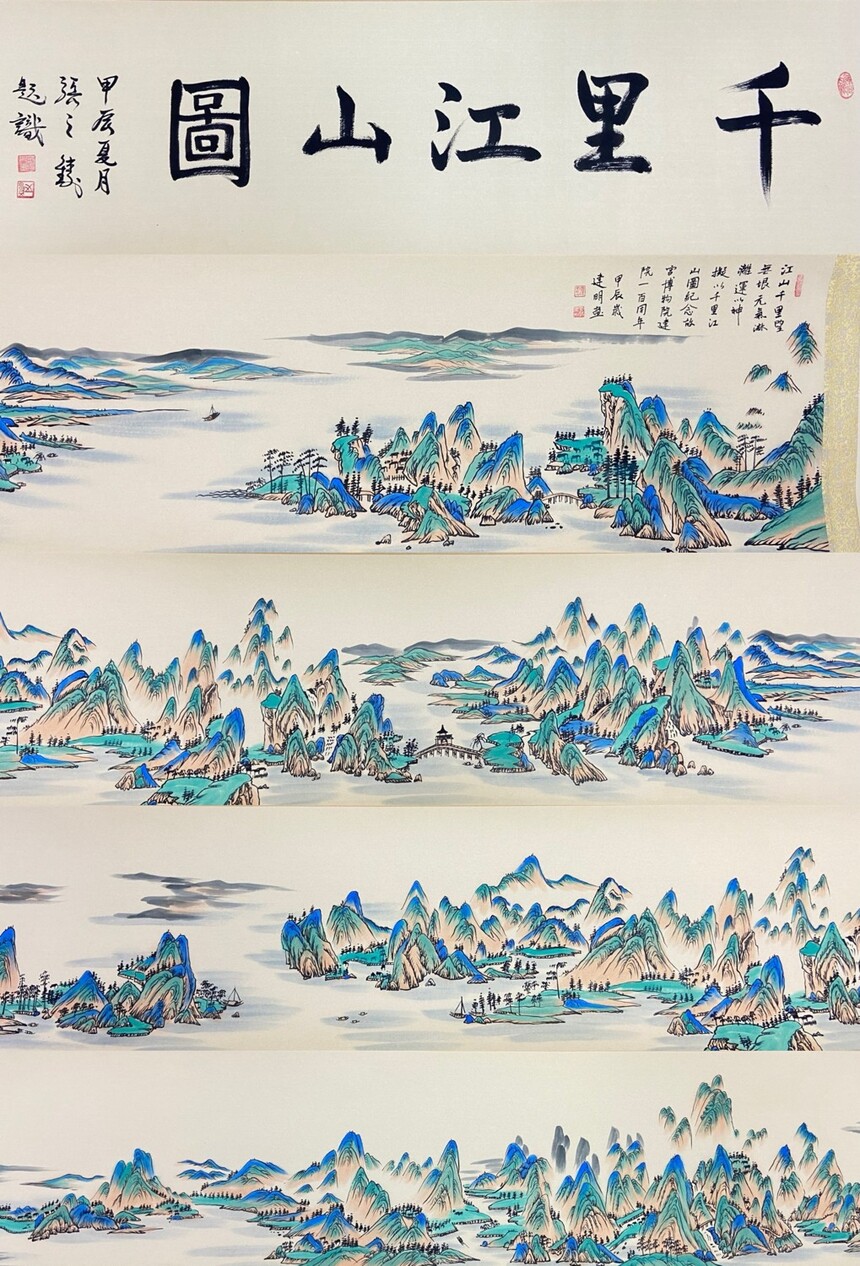 千里江山圖
甲辰夏月
張之
題識
江山千里望
無垠元氣淋
灕運以神
擬以千里江
山圖紀念故
宮博物院建
院一百周年
甲辰歲
建明畫